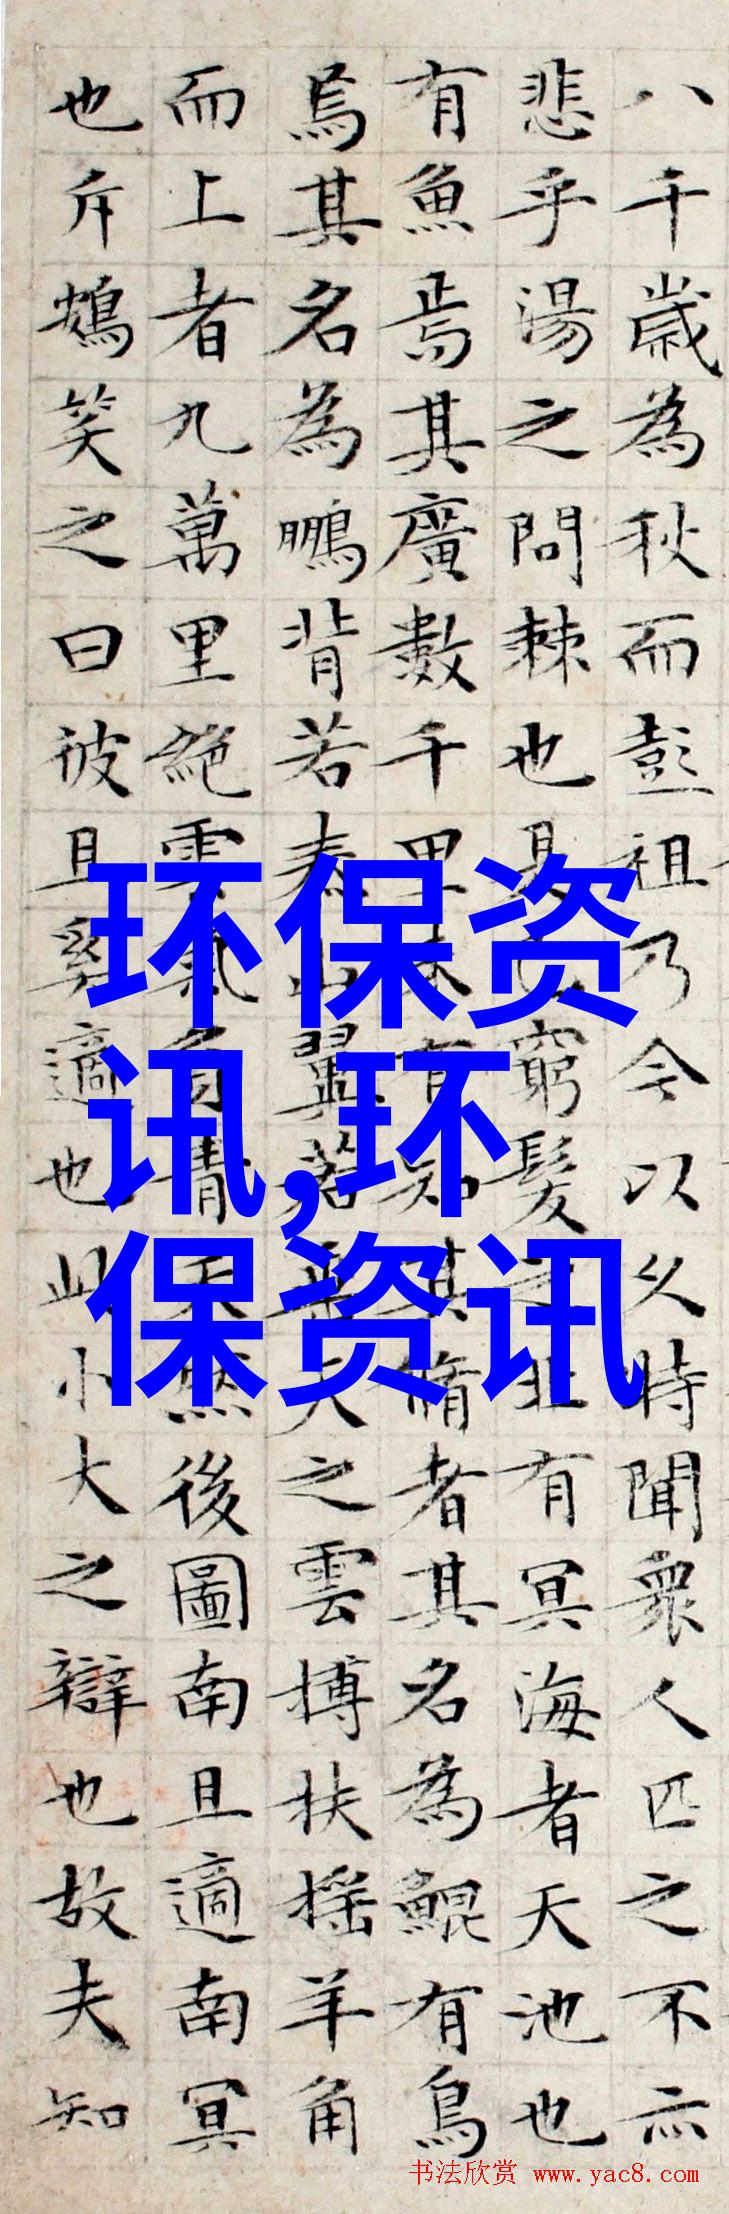 八千歲為秋而彭祖乃今以久時聞衆人匹之不亦
悲乎湯之問棘也是已窮髮之北有冥海者天池也
有魚焉其廣數千里未有知其脩者其名為鯤有鳥
焉其名為鵬背若泰山翼若垂天之雲搏扶搖羊角
而上者九萬里絕雲氣負青天然後圖南且適南冥
也斥鴳笑之曰彼且奚適也此小大之辯也故夫知
环保资
讯,环
保资讯
书法欣赏 www.yac8.com